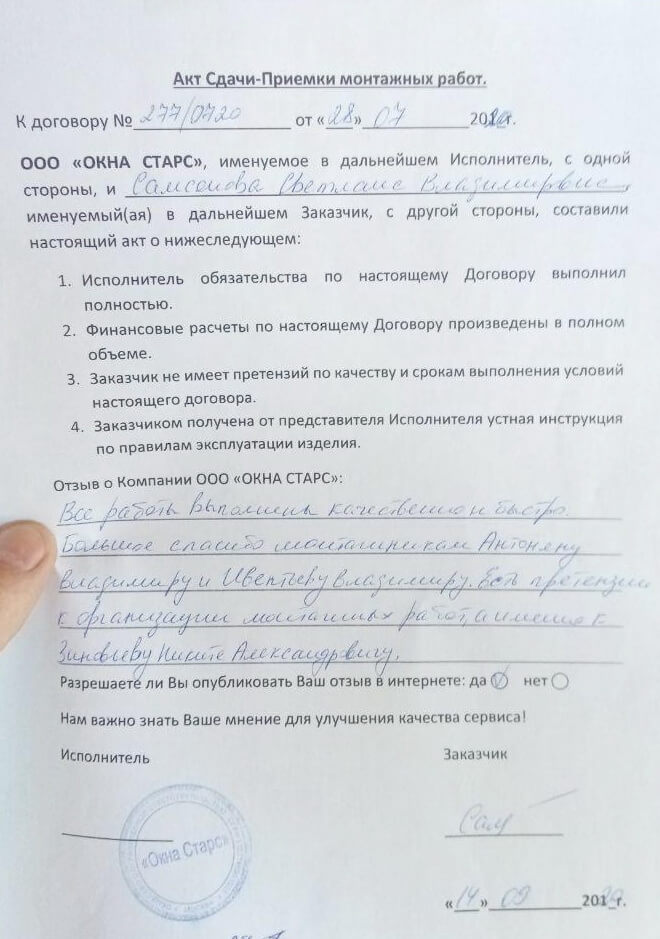 Акт Сдачи-Приемки монтажных работ.
К договору № 277/0720 от «28» 07 2020г.
ООО «ОКНА СТАРС», именуемое в дальнейшем Исполнитель, с одной
стороны, и Самсонова Светлана Владимировна,
именуемый(ая) в дальнейшем Заказчик, с другой стороны, составили
настоящий акт о нижеследующем:
1. Исполнитель обязательства по настоящему Договору выполнил
полностью.
2. Финансовые расчеты по настоящему Договору произведены в полном
объеме.
3. Заказчик не имеет претензий по качеству и срокам выполнения условий
настоящего договора.
4. Заказчиком получена от представителя Исполнителя устная инструкция
по правилам эксплуатации изделия.
Отзыв о Компании ООО «ОКНА СТАРС»:
Все работы выполнены качественно и быстро.
Большое спасибо монтажникам Антоняну
Владимиру и Ивентьеву Владимиру. Есть претензии
к организации монтажных работ, а именно к
Зиновьеву Никите Александровичу.
Разрешаете ли Вы опубликовать Ваш отзыв в интернете: да нет
Нам важно знать Ваше мнение для улучшения качества сервиса!
Исполнитель Заказчик
«Окна Старс» Сам
«14» 09 2020г.